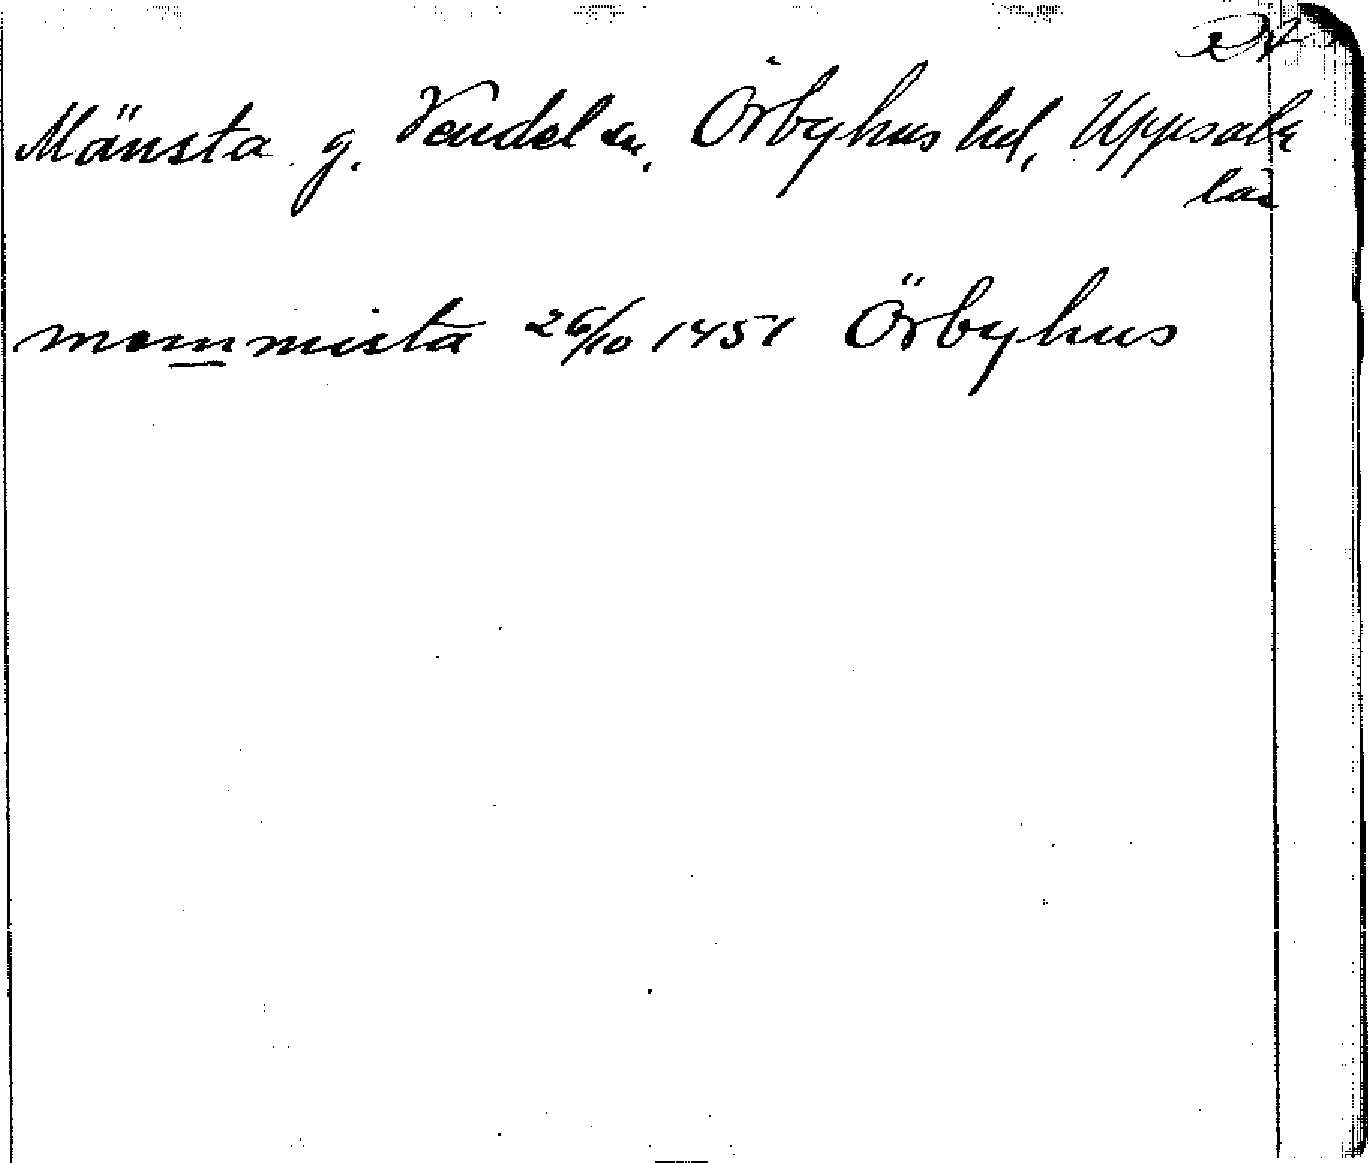 Mänsta g. Vendel sn. Örbyhus hd, Uppsala
län
mommista 26/10 1451 Örbyhus